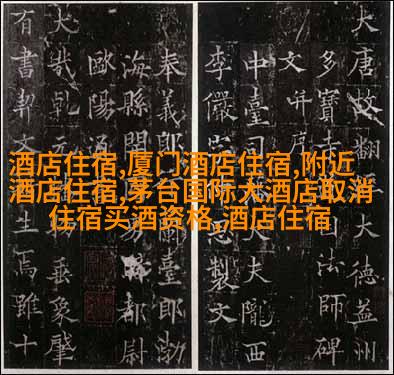 酒店住宿,厦门酒店住宿,附近
酒店住宿,茅台国际大酒店取消
住宿买酒资格,酒店住宿
大唐故翻大德益州
多寶寺法師碑
文并序
中臺司大夫隴西
李儼製文
奉義郎蘭臺郎渤
海縣開都尉
歐陽通
大哉乾元垂象肇
有書契文生焉雖十